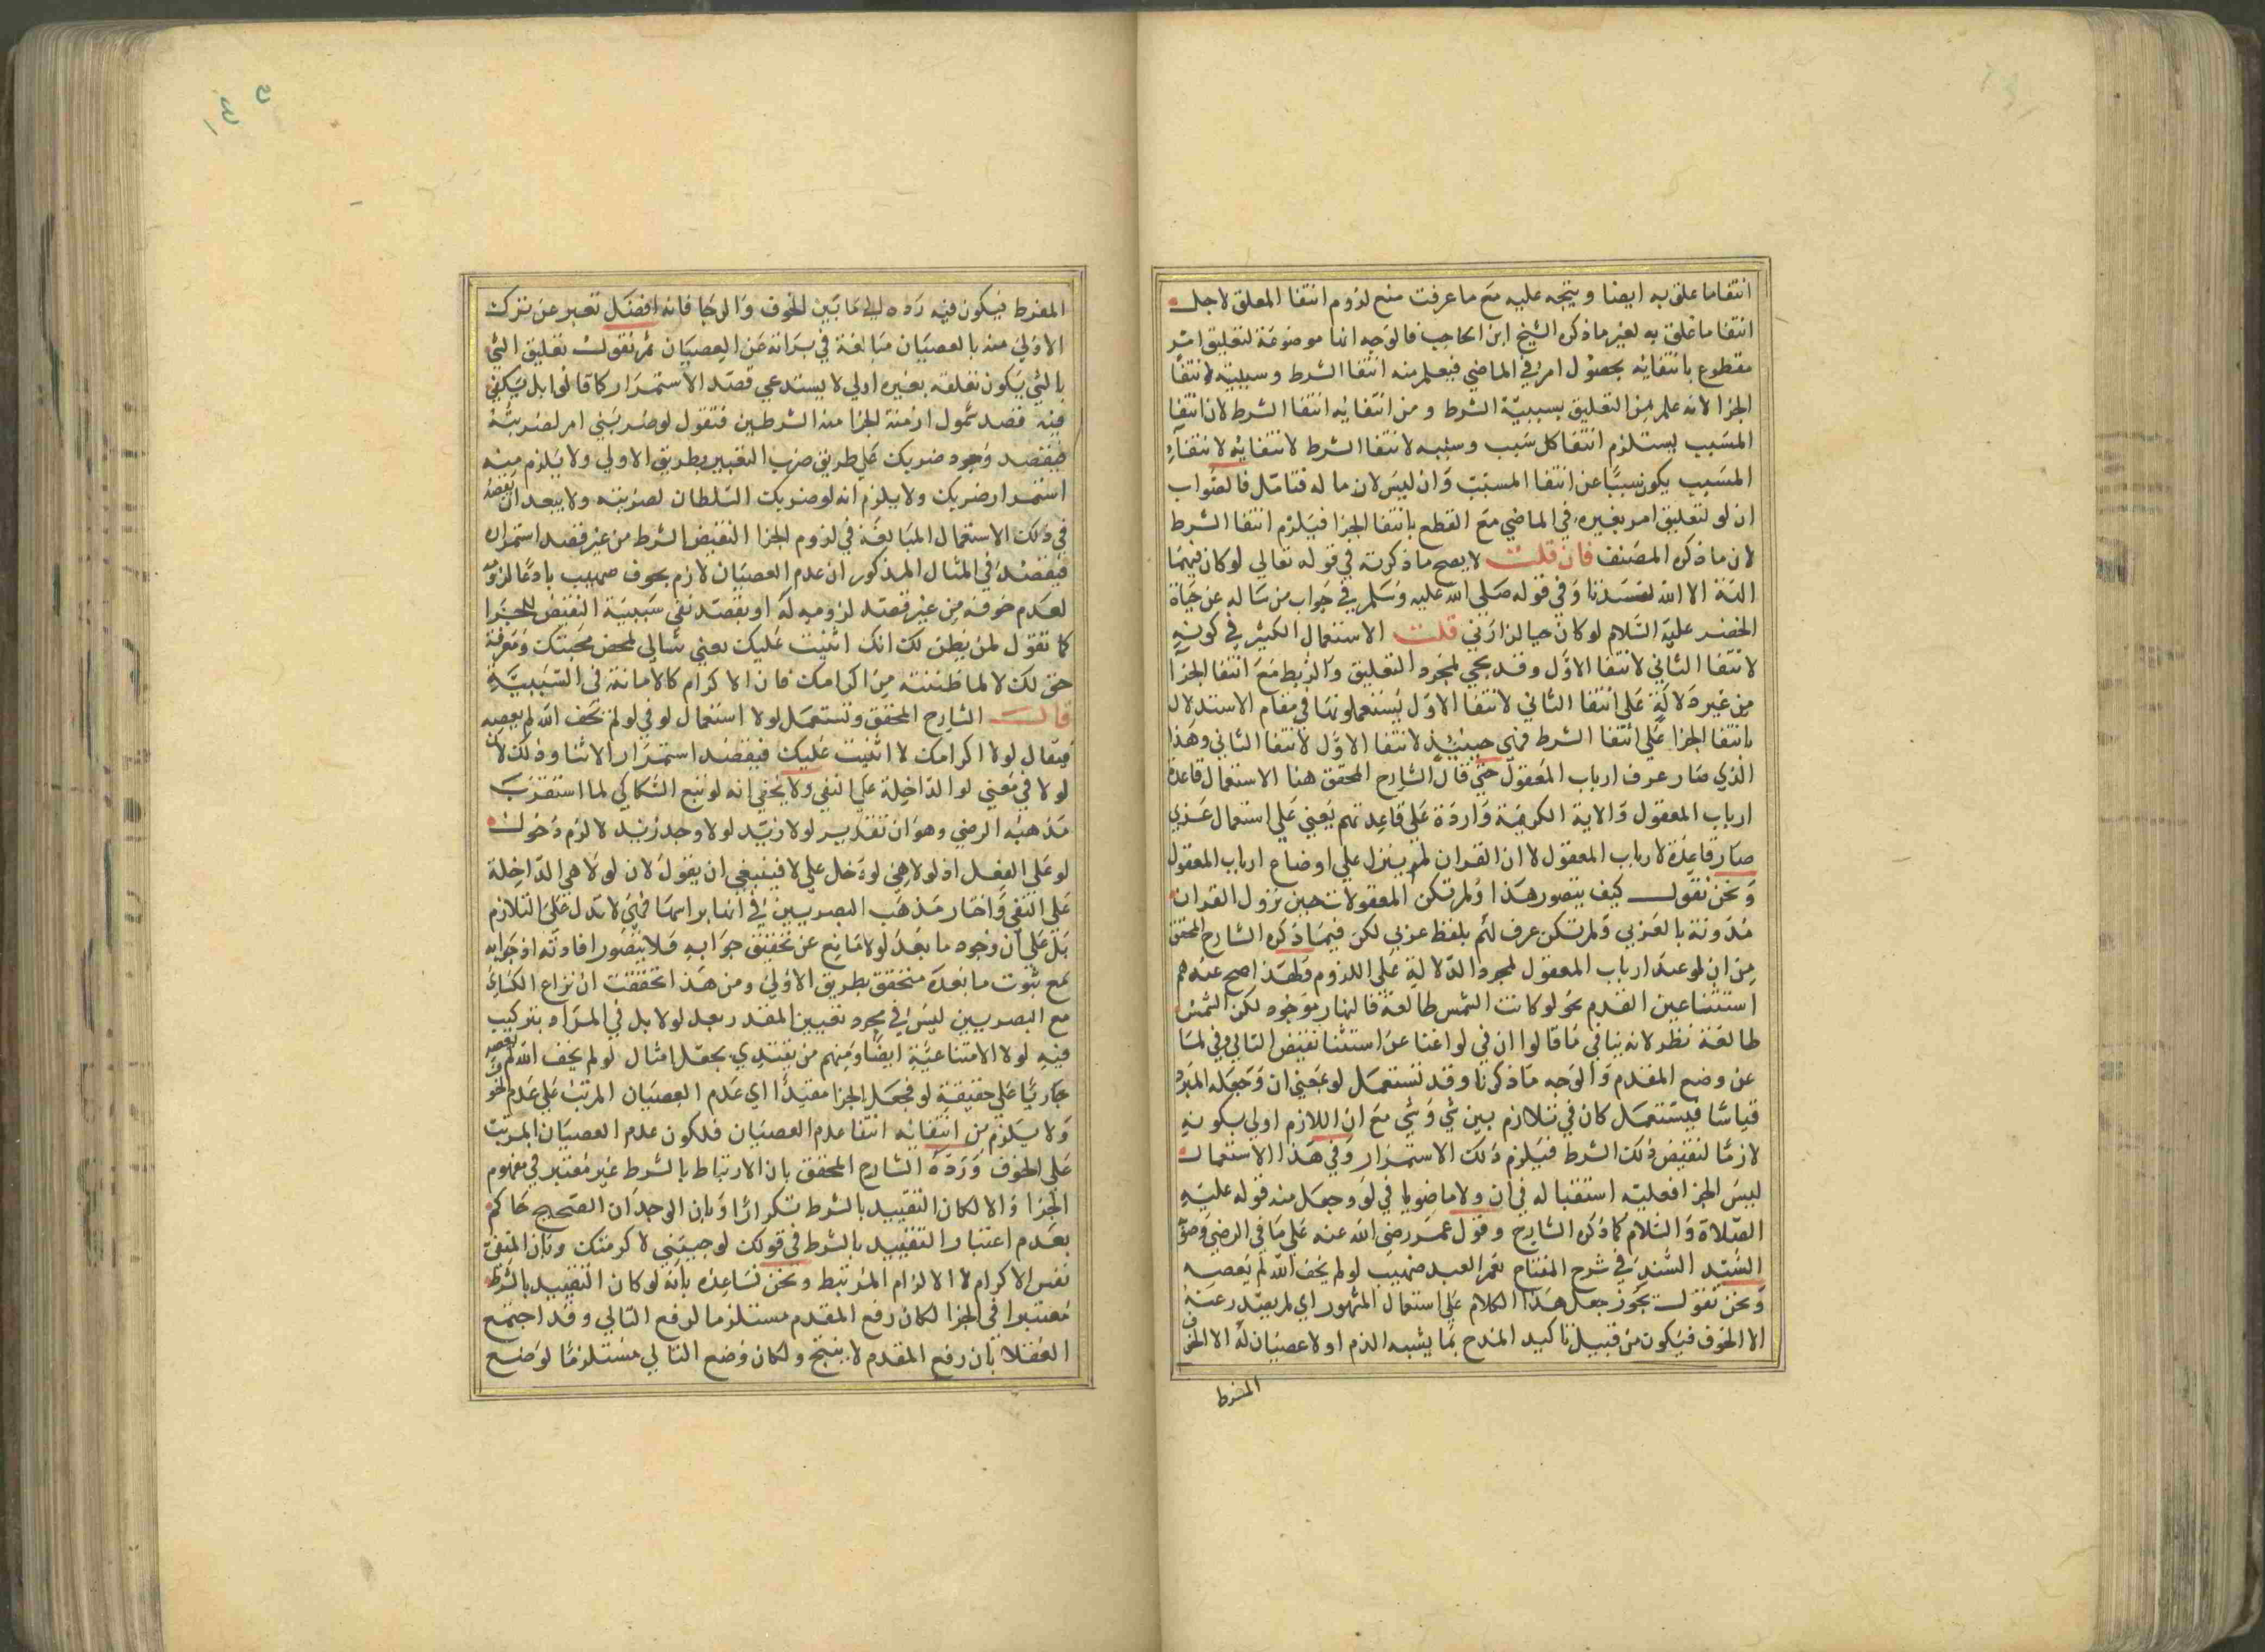 انتفا ما علق به ايضا ويتجه عليه مع ما عرفت منع لزوم انتفا المعلق لاجل
انتفا ما علق به لغير ما ذكره الشيخ ابن الحاجب فالوجه انها موضوعة لتعليق امر
مقطوع بانتفائه بحصول امر في الماضي فيعلم منه انتفا الشرط وسببيته لانتفا
الجزا لانه علم من التعليق بسببية الشرط ومن انتفائه انتفا الشرط لان انتفا
المسبب يستلزم انتفا كل سبب وسببه لانتفا الشرط لانتفائه لانتفاء
المسبب يكون سببا عن انتفا المسبب وان ليس لان ما له فتامل فالصواب
ان لو لتعليق امر بغيره في الماضي مع القطع بانتفا الجزا فيلزم انتفا الشرط
لان ما ذكره المصنف فان قلت لا يصح ما ذكرته في قوله تعالي لو كان فيهما
الهة الا الله لفسدتا وفي قوله صلي الله عليه وسلم في جواب من ساله عن حياة
الخضر عليه السلام لو كان حيا لزارني قلت الاستعمال الكثير في كونه
لانتفا الثاني لانتفا الاول وقد يجي لمجرد التعليق والربط مع انتفا الجزا
من غير دلالة على انتفا الثاني لانتفا الاول يستعملونها في مقام الاستدلال
بانتفا الجزا علي انتفا الشرط فهي حينئذ لانتفا الاول لانتفا الثاني وهذا
الذي صار عرف ارباب المعقول حتي قال الشارح المحقق هنا الاستعمال قاعدة
ارباب المعقول والاية الكريمة واردة علي قاعدتهم يعني علي استعمال عربي
صار قاعدة لارباب المعقول لا ان القران لم ينزل علي اوضاع ارباب المعقول
ونحن نقول كيف يتصور هذا ولم تكن المعقولات حين نزول القران
مدونة بالعربي ولم تكن عرف لهم بلفظ عربي لكن فيما ذكره الشارح المحقق
من ان لو عند ارباب المعقول لمجرد الدلالة علي اللزوم ولهذا صح عندهم
استثنا عين القدم نحو لو كانت الشمس طالعة فالنهار موجود لكن الشمس
طالعة نظر لانه ينافي ما قالوا ان في لو اغنا عن استثنا نقيض التالي وفي لما
عن وضع المقدم والوجه ما ذكرنا وقد تستعمل لو بمعني ان وجعله المبرد
قياسا فيستعمل كان في تلازم بين شي وشي مع ان اللازم اولي بكونه
لازما لنقيض ذلك الشرط فيلزم ذلك الاستمرار وفي هذا الاستعمال
ليس الجزا فعليته استقباله في ان ولا ماضويا في لو وجعل منه قوله عليه
الصلاة والسلام كما ذكره الشارح وقول عمر رضي الله عنه علي ما في الرضي وصوبه
السيد السند في شرح المفتاح نعم العبد صهيب لو لم يخف الله لم يعصه
ونحن نقول يجوز جعل هذا الكلام علي استعمال المشهور اي لم يصدر عنه
الا الخوف فيكون من قبيل تاكيد المدح بما يشبه الذم او لا عصيان له الا الخوف
المفرط
المفرط فيكون فيه رده الي ما بين الخوف والرجا فانه افضل تعبر عن ترك
الاولي منه بالعصيان مبالغة في براته عن العصيان ثم نقول تعليق الشي
بالشي يكون تعلقه بغيره اولي لا يستدعي قصد الاستمرار كما قالوا بل يكفي
فيه قصد شمول ازمنة الجزا منه الشرطين فتقول لو ضربني امر لضربته
فيقصد وجود ضربك علي طريق ضرب التعبير بطريق الاولي ولا يلزم منه
استمرار ضربك ولا يلزم انه لو ضربك السلطان لضربته ولا يبعد ان يقصد
في ذلك الاستعمال المبالغة في لزوم الجزا لنقيض الشرط من غير قصد استمراره
فيقصد في المثال المذكور ان عدم العصيان لازم بخوف صهيب بادعا لزومه
لعدم خوفه من غير قصد لزومه له او يقصد نفي سببية النقيض للجزا
كما تقول لمن يظن لك انك اثنيت عليك يعني ثنائي لمحض محبتك ومعرفة
حق لك لا لما ظننته من اكرامك فان الاكرام كالاهانة في السببية
قال الشارح المحقق وتستعمل لولا استعمال لو في لو لم يخف الله لم يعصه
فيقال لولا اكرامك لاثنيت عليك فيقصد استمرار الاثنا وذلك لان
لولا في معني لو الداخلة علي النفي ولا يخفي انه لو تتبع السكاكي لما استقرب
مذهبه الرضي وهو ان تقدير لولا زيد لو لا وجد زيد لا لزم دخول
لو علي الفعل اذ لولا هي لو دخل علي لا فينبغي ان يقول لان لولا هي الداخلة
علي النفي واختار مذهب البصريين في انها براسها فهي لا تدل علي التلازم
بل علي ان وجود ما بعد لولا مانع عن تحقق جوابه فلا يتصور افادته اذ جوابه
مع ثبوت ما بعده متحقق بطريق الاولي ومن هذا تحققت ان نزاع الكسائي
مع البصريين ليس في مجرد تعيين المقدر بعد لولا بل في المراد بتركيب
فيه لولا الامتناعية ايضا ومنهم من يقتدي بجعل امثال لو لم يخف الله لم يعصه
جاريا علي حقيقة لو فجعل الجزا مقيدا اي عدم العصيان المرتب علي عدم الخوف
ولا يلزم من انتفائه انتفا عدم العصيان فلكون عدم العصيان المرتب
علي الخوف ورده الشارح المحقق بان الارتباط بالشرط غير معتبر في مفهوم
الجزا والا لكان التقييد بالشرط تكرارا وبان الوجدان الصحيح حاكم
بعدم اعتبار التقييد بالشرط في قولك لو جيتني لاكرمتك وبان المنفي
نفس الاكرام لا الالزام المرتبط ونحن نساعده بانه لو كان التقييد بالشرط
معتبرا في الجزا لكان رفع المقدم مستلزما لرفع التالي وقد اجتمع
العقلا بان رفع المقدم لا ينتج ولكان وضع التالي مستلزما لوضع